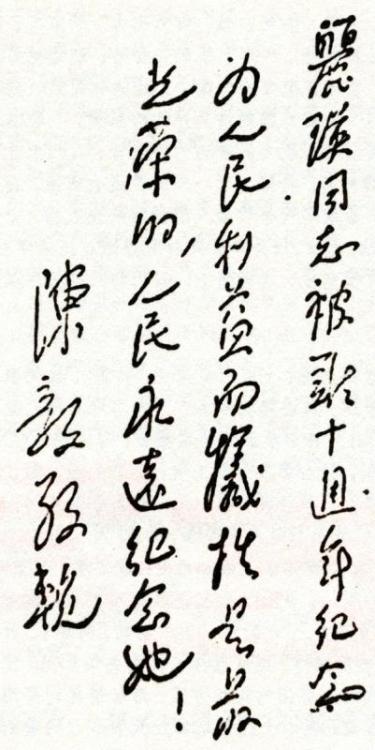 麗瑛同志被难十週年纪念
为人民利益而犧牲是最
光荣的，人民永遠纪念她！
陳毅敬輓